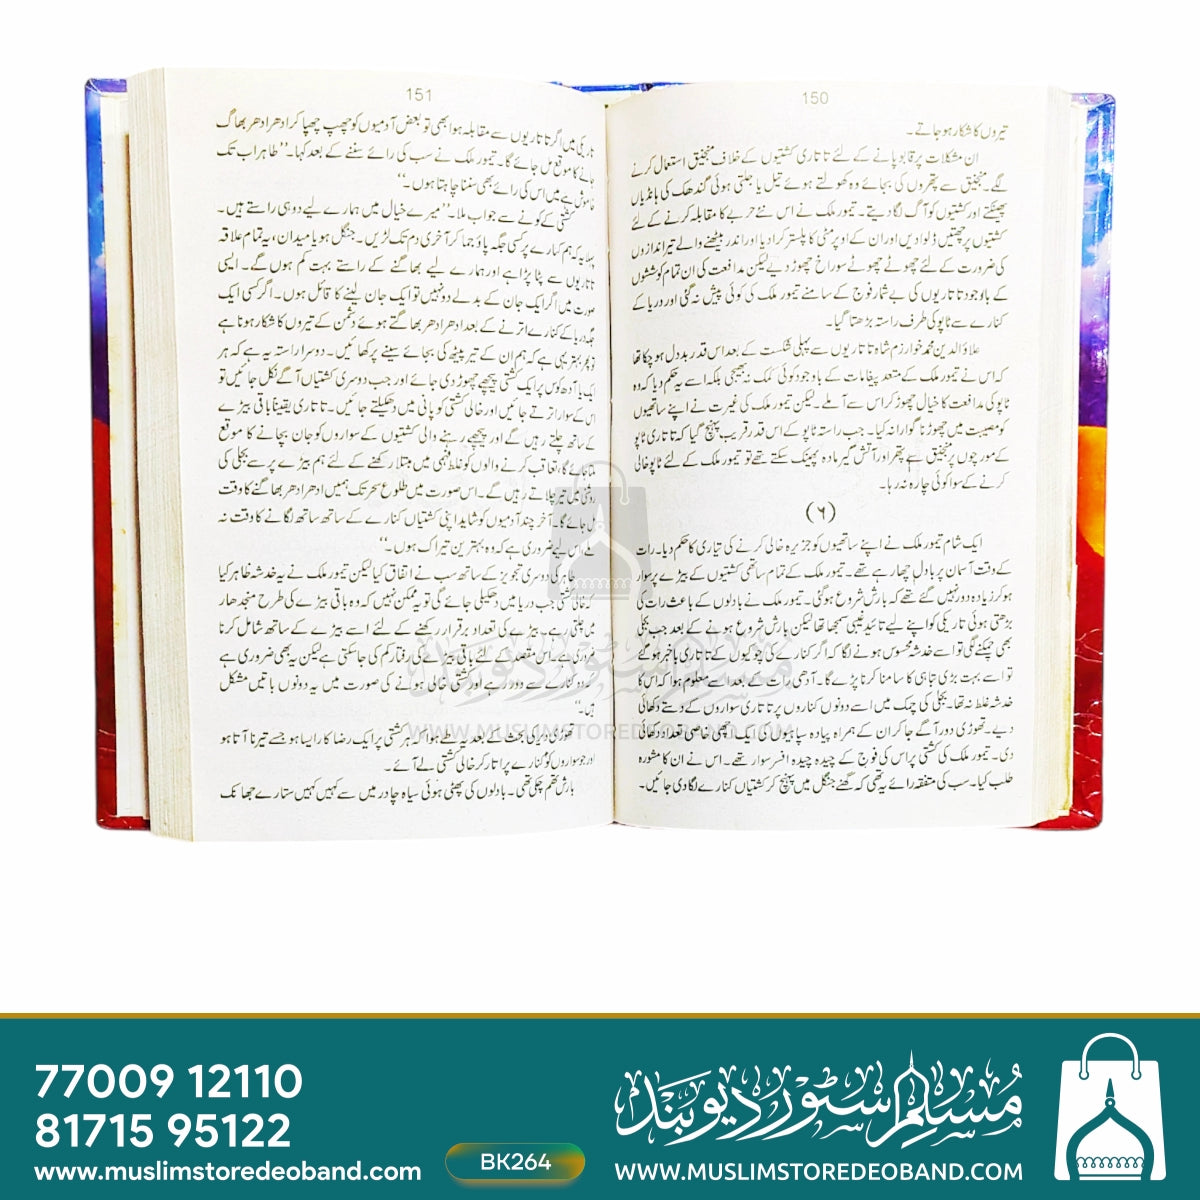 150
تیروں کا شکار ہو جاتے۔
ان مشکلات پر قابو پانے کے لئے تاتاری کشتیوں کے خلاف منجنیق استعمال کرنے
لگے۔ منجنیق سے پتھروں کی بجائے وہ کھولتے ہوئے تیل یا جلتی ہوئی گندھک کی ہانڈیاں
پھینکتے اور کشتیوں کو آگ لگا دیتے۔ تیمور ملک نے اس نئے حربے کا مقابلہ کرنے کے لئے
کشتیوں پر چھتیں ڈلوا دیں اور ان کے اوپر مٹی کا پلستر کرا دیا اور اندر بیٹھنے والے تیر اندازوں
کی ضرورت کے لئے چھوٹے چھوٹے سوراخ چھوڑ دیے لیکن مدافعت کی ان تمام کوششوں
کے باوجود تاتاریوں کی بے شمار فوج کے سامنے تیمور ملک کی کوئی پیش نہ گئی اور دریا کے
کنارے سے ٹاپو کی طرف راستہ بڑھتا گیا۔
علاؤ الدین محمد خوارزم شاہ تاتاریوں سے پہلی شکست کے بعد اس قدر بددل ہو چکا تھا
کہ اس نے تیمور ملک کے متعدد پیغامات کے باوجود کوئی کمک نہ بھیجی بلکہ اسے یہ حکم دیا کہ وہ
ٹاپو کی مدافعت کا خیال چھوڑ کر اس سے آ ملے۔ لیکن تیمور ملک کی غیرت نے اپنے ساتھیوں
کو مصیبت میں چھوڑنا گوارا نہ کیا۔ جب راستہ ٹاپو کے اس قدر قریب پہنچ گیا کہ تاتاری ٹاپو
کے مورچوں پر منجنیق سے پتھر اور آتش گیر مادہ پھینک سکتے تھے تو تیمور ملک کے لئے ٹاپو خالی
کرنے کے سوا کوئی چارہ نہ رہا۔
(۶)
ایک شام تیمور ملک نے اپنے ساتھیوں کو جزیرہ خالی کرنے کی تیاری کا حکم دیا۔ رات
کے وقت آسمان پر بادل چھا رہے تھے۔ تیمور ملک کے تمام ساتھی کشتیوں کے بیڑے پر سوار
ہو کر زیادہ دور نہیں گئے تھے کہ بارش شروع ہو گئی۔ تیمور ملک نے بادلوں کے باعث رات کی
بڑھتی ہوئی تاریکی کو اپنے لیے تائید غیبی سمجھا تھا لیکن بارش شروع ہونے کے بعد جب بجلی
بھی چمکنے لگی تو اسے خدشہ محسوس ہونے لگا کہ اگر کنارے کی چوکیوں کے تاتاری باخبر ہو گئے
تو اسے بہت بڑی تباہی کا سامنا کرنا پڑے گا۔ آدھی رات کے بعد اسے معلوم ہوا کہ اس کا
خدشہ غلط نہ تھا۔ بجلی کی چمک میں اسے دونوں کناروں پر تاتاری سواروں کے دستے دکھائی
دیے۔ تھوڑی دور آگے جا کر ان کے ہمراہ پیادہ سپاہیوں کی ایک اچھی خاصی تعداد دکھائی
دی۔ تیمور ملک کی کشتی پر اس کی فوج کے چیدہ چیدہ افسر سوار تھے۔ اس نے ان کا مشورہ
طلب کیا۔ سب کی متفقہ رائے یہ تھی کہ گھنے جنگل میں پہنچ کر کشتیاں کنارے لگا دی جائیں۔
151
تاریکی میں اگر تاتاریوں سے مقابلہ ہوا بھی تو بعض آدمیوں کو چھپ چھپا کر ادھر ادھر بھاگ
جانے کا موقع مل جائے گا۔ تیمور ملک نے سب کی رائے سننے کے بعد کہا۔ ’’طاہر اب تک
خاموش ہے میں اس کی رائے بھی سننا چاہتا ہوں۔‘‘
کشتی کے کونے سے جواب ملا۔ ’’میرے خیال میں ہمارے لیے دو ہی راستے ہیں۔
پہلا یہ کہ ہم کنارے پر کسی جگہ پاؤ جما کر آخری دم تک لڑیں۔ جنگل ہو یا میدان، یہ تمام علاقہ
تاتاریوں سے پٹا پڑا ہے اور ہمارے لیے بھاگنے کے راستے بہت کم ہوں گے۔ ایسی
صورت میں اگر ایک جان کے بدلے دو نہیں تو ایک جان لینے کا قائل ہوں۔ اگر کسی ایک
جگہ دریا کے کنارے اترنے کے بعد ادھر ادھر بھاگتے ہوئے دشمن کے تیروں کا شکار ہونا ہے
تو پھر بہتر یہی ہے کہ ہم ان کے تیر پیٹھ کی بجائے سینے پر کھائیں۔ دوسرا راستہ یہ ہے کہ ہر
ایک یا آدھ کوس پر ایک کشتی پیچھے چھوڑ دی جائے اور جب دوسری کشتیاں آگے نکل جائیں تو
اس کے سوار اترتے جائیں اور خالی کشتی کو پانی میں دھکیلتے جائیں۔ تاتاری یقیناً باقی بیڑے
کے ساتھ چلتے رہیں گے اور پیچھے رہنے والی کشتیوں کے سواروں کو جان بچانے کا موقع
ملتا جائے گا، تعاقب کرنے والوں کو غلط فہمی میں مبتلا رکھنے کے لئے ہم بیڑے پر سے بجلی کی
روشنی میں تیر چلاتے رہیں گے۔ اس صورت میں طلوع سحر تک ہمیں ادھر ادھر بھاگنے کا وقت
مل جائے گا۔ آخر چند آدمیوں کو شاید اپنی کشتیاں کنارے کے ساتھ ساتھ لگانے کا وقت نہ
ملے اس لیے ضروری ہے کہ وہ بہترین تیراک ہوں۔‘‘
طاہر کی دوسری تجویز کے ساتھ سب نے اتفاق کیا لیکن تیمور ملک نے یہ خدشہ ظاہر کیا
کہ خالی کشتی جب دریا میں دھکیلی جائے گی تو یہ ممکن نہیں کہ وہ باقی بیڑے کی طرح منجدھار
میں چلتی رہے۔ بیڑے کی تعداد برقرار رکھنے کے لئے اسے بیڑے کے ساتھ شامل کرنا
ضروری ہے۔ اس مقصد کے لئے باقی بیڑے کی رفتار کم کی جا سکتی ہے لیکن یہ بھی ضروری ہے
کہ وہ کنارے سے دور رہے اور کشتی خالی ہونے کی صورت میں یہ دونوں باتیں مشکل
ہیں۔‘‘
تھوڑی دیر کی بحث کے بعد یہ طے ہوا کہ ہر کشتی پر ایک رضا کار ایسا ہو جسے تیرنا آتا ہو
اور جو سواروں کو کنارے پر اتار کر خالی کشتی لے آئے۔
بارش تھم چکی تھی۔ بادلوں کی پھٹی ہوئی سیاہ چادر میں سے کہیں کہیں ستارے جھانک
مسلم سٹور دیوبند
WWW.MUSLIMSTOREDEOBAND.COM
77009 12110
81715 95122
www.muslimstoredeoband.com
BK264
مسلم سٹور دیوبند
WWW.MUSLIMSTOREDEOBAND.COM